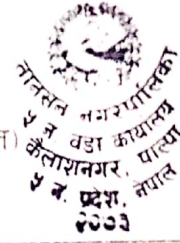 तानसेन नगरपालिका
५ नं वडा कार्यालय
कैलाशनगर, पाल्पा
५ नं. प्रदेश, नेपाल
२०७३